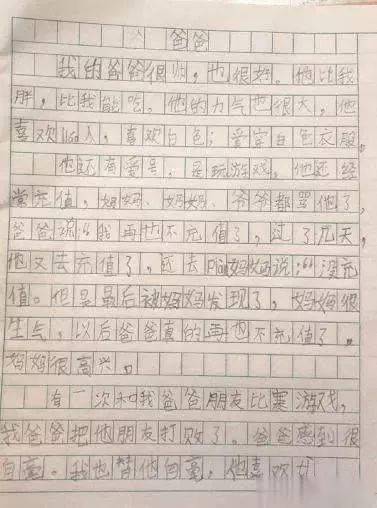 爸爸
我的爸爸很帅，也很好。他比我
胖，比我能吃。他的力气也很大，他
喜欢的人，喜欢白色；爱穿白色衣服。
他还有爱号，是玩游戏。他还经
常充值，妈妈、奶奶、爷爷都骂他了，
爸爸说“我再也不充值了，过了几天，
他又去充值了，还去pian妈妈说：“没充
值。但是最后被妈妈发现了，妈妈很
生气，以后爸爸真的再也不充值了。
妈妈很高兴。
有一次和我爸爸朋友比赛游戏，
我爸爸把他朋友打败了。爸爸感到很
自豪。我也替他自豪，他喜欢